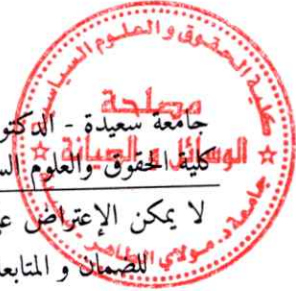 كلية الحقوق و العلوم السياسية
مصلحة
الوسائل و الصيانة
جامعة د. مولاي الطاهر
جامعة سعيدة - الدكتو
كلية الحقوق والعلوم الس
لا يمكن الإعتراض ع
للضمان و المتابعا